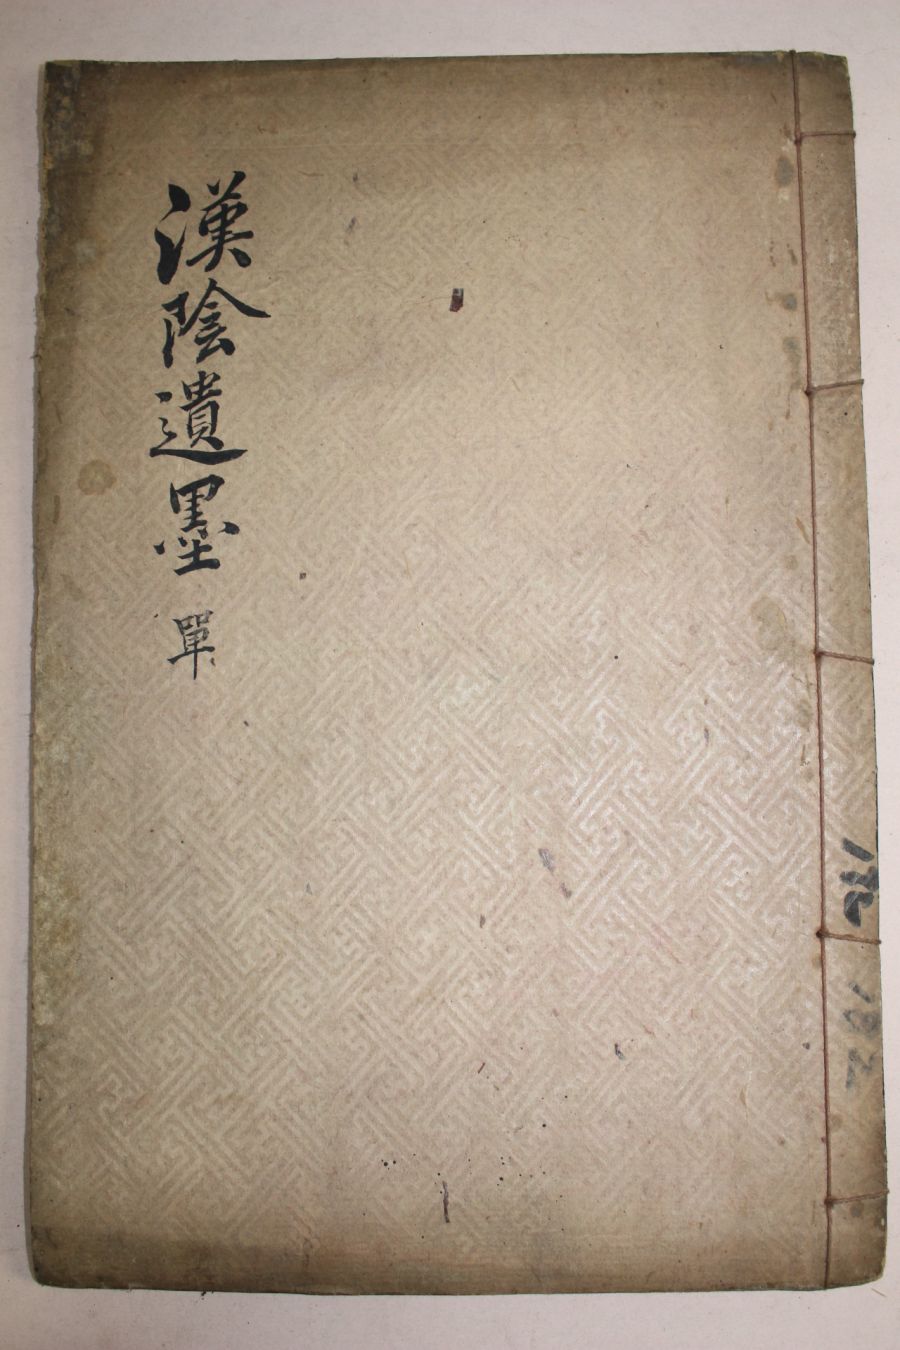 漢陰遺墨 單